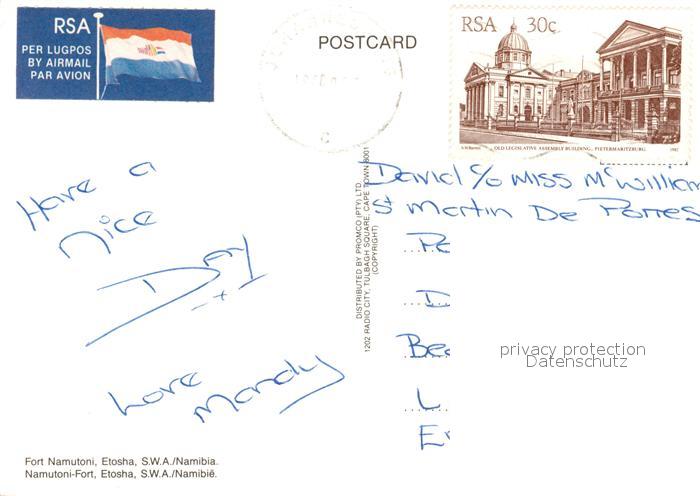 RSA
PER LUGPOS
BY AIRMAIL
PAR AVION
POSTCARD
RSA 30c
OLD LEGISLATIVE ASSEMBLY BUILDING, PIETERMARITZBURG.
1982
Have a
Nice
Day
Love
Mandy
DISTRIBUTED BY PROMCO (PTY) LTD.
1202 RADIO CITY, TULBAGH SQUARE, CAPE TOWN 8001
(COPYRIGHT)
David c/o Miss McWilliam
St Martin De Porres
privacy protection
Datenschutz
Fort Namutoni, Etosha, S.W.A./Namibia.
Namutoni-Fort, Etosha, S.W.A./Namibië.